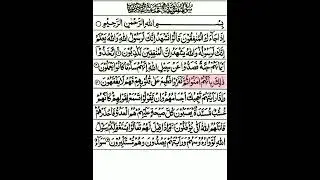 بِسْمِ اللهِ الرَّحْمٰنِ الرَّحِيْمِ
اِذَا جَآءَكَ الْمُنٰفِقُوْنَ قَالُوْا نَشْهَدُ اِنَّكَ لَرَسُوْلُ اللهِ وَاللهُ يَعْلَمُ
اِنَّكَ لَرَسُوْلُهٗ وَاللهُ يَشْهَدُ اِنَّ الْمُنٰفِقِيْنَ لَكٰذِبُوْنَ اِتَّخَذُوْٓا
اَيْمَانَهُمْ جُنَّةً فَصَدُّوْا عَنْ سَبِيْلِ اللهِ اِنَّهُمْ سَآءَ مَا كَانُوْا يَعْمَلُوْنَ
ذٰلِكَ بِاَنَّهُمْ اٰمَنُوْا ثُمَّ كَفَرُوْا فَطُبِعَ عَلٰى قُلُوْبِهِمْ فَهُمْ لَا يَفْقَهُوْنَ
وَاِذَا رَاَيْتَهُمْ تُعْجِبُكَ اَجْسَامُهُمْ وَاِنْ يَّقُوْلُوْا تَسْمَعْ لِقَوْلِهِمْ كَاَنَّهُمْ
خُشُبٌ مُّسَنَّدَةٌ يَحْسَبُوْنَ كُلَّ صَيْحَةٍ عَلَيْهِمْ هُمُ الْعَدُوُّ فَاحْذَرْهُمْ
قَاتَلَهُمُ اللهُ اَنّٰى يُؤْفَكُوْنَ وَاِذَا قِيْلَ لَهُمْ تَعَالَوْا يَسْتَغْفِرْ لَكُمْ رَسُوْلُ
اللهِ لَوَّوْا رُءُوْسَهُمْ وَرَاَيْتَهُمْ يَصُدُّوْنَ وَهُمْ مُّسْتَكْبِرُوْنَ سَوَآءٌ